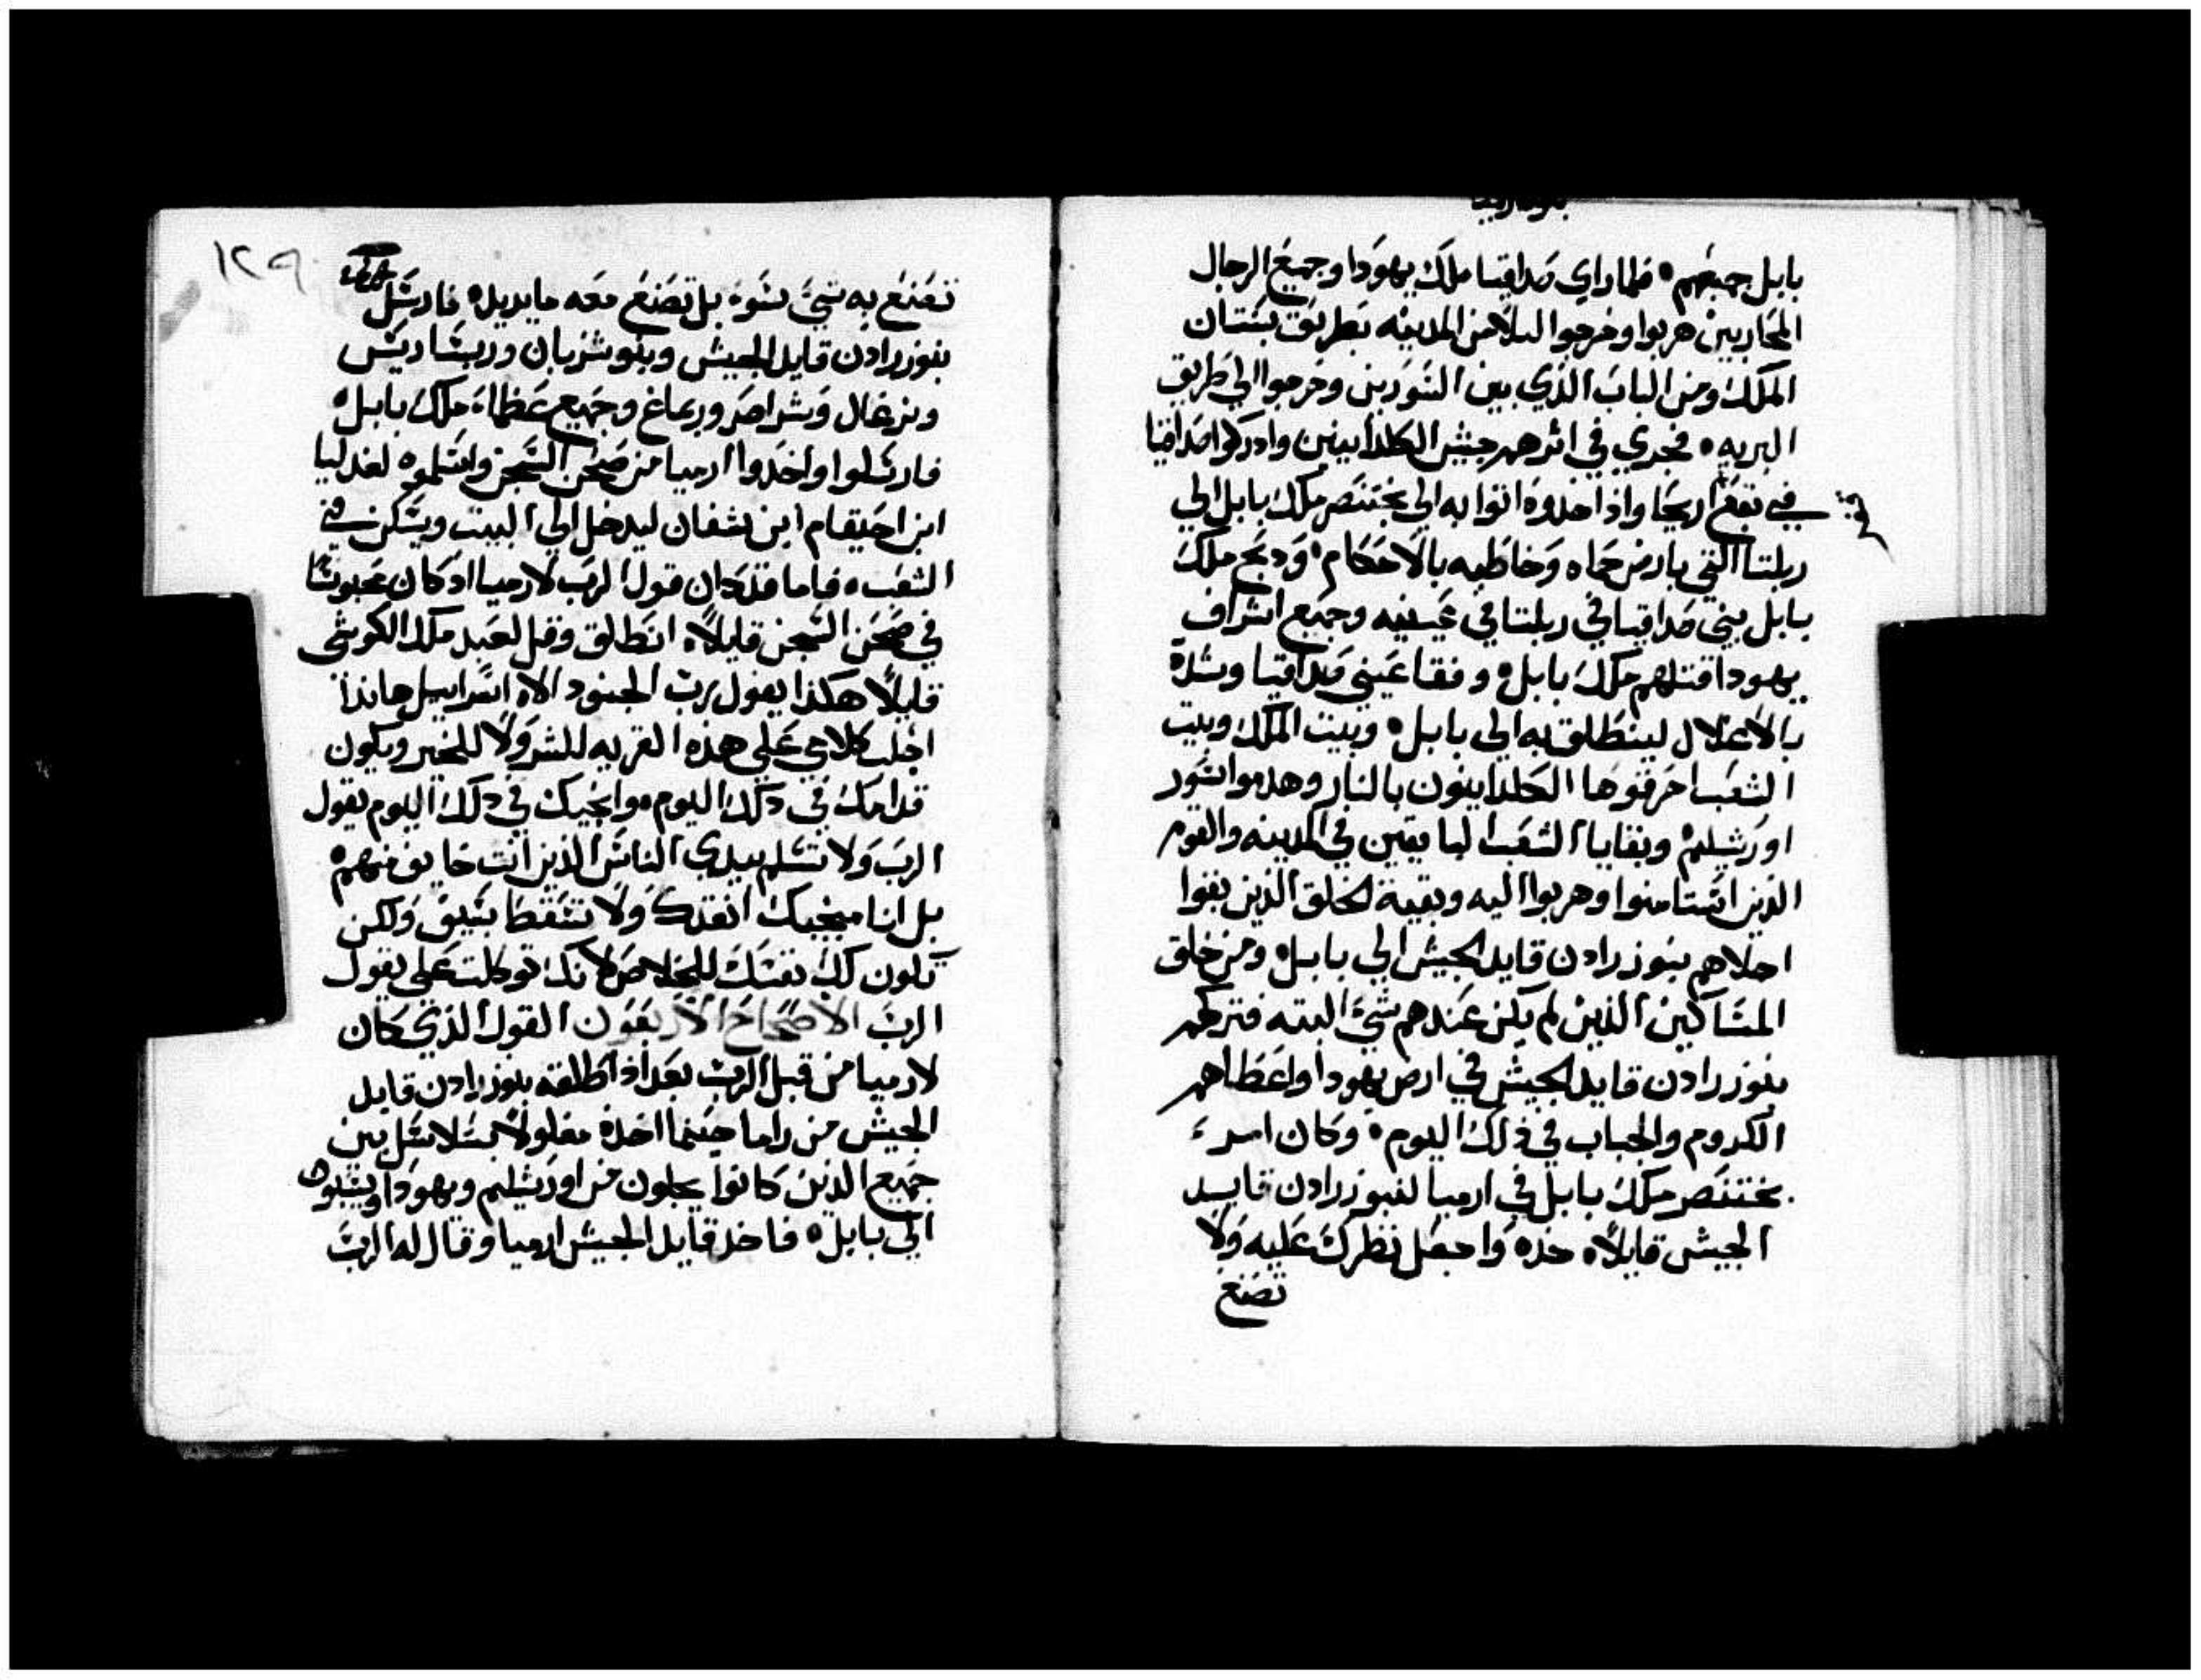 بابل جميعهم ۰ فلما راي صداقيا ملك يهودا وجميع الرجال
المحاربين هربوا وخرجوا ليلا من المدينه بطريق بستان
الملك ومن الباب الذي بين السورين وخرجوا الي طريق
البريه ۰ فجري في اثرهم جيش الكلدانيين وادركوا صداقيا
في بقع اريحا واذ اخدوه اتوا به الي بختنصر ملك بابل الي
ربلتا التي بارض حماه وخاطبه بالاحكام ۰ ودبح ملك
بابل بني صداقيا في ربلتا في عينيه وجميع اشراف
يهودا قتلهم ملك بابل ۰ وفقا عيني صداقيا وشده
بالاغلال لينطلق به الي بابل ۰ وبيت الملك وبيت
الشعب احرقوها الكلدانيون بالنار وهدموا سور
اورشليم ۰ وبقايا الشعب الباقيين في المدينه والقوم
الذين استامنوا وهربوا اليه وبقية الخلق الذين بقوا
اجلاهم بنوزرادن قايد الجيش الي بابل ۰ ومن خلق
المساكين الذين لم يكن عندهم شي البته فتركهم
بنوزرادن قايد الجيش في ارض يهودا واعطاهم
الكروم والجباب في ذلك اليوم ۰ وكان امر
بختنصر ملك بابل في ارميا لنبوزرادن قايد
الجيش قايلا ۰ خذه واجعل نظرك عليه ولا
تصنع
١٢٩
تصنع به شي سوء بل تصنع معه ما يريد ۰ فارسل
بنوزرادن قايد الجيش وبنوشزبان وربساريس
ونرغال وشراصر وربماغ وجميع عظماء ملك بابل ۰
فارسلوا واخدوا ارميا من صحن السجن واسلموه لغدليا
ابن احيقام ابن شفان ليدخل الي البيت ويسكن في
الشعب ۰ فاما قد كان قول الرب لارميا اد كان محبوسًا
في صحن السجن قايلاً ۰ انطلق وقل لعبد ملك الكوشي
قايلاً هكذا يقول رب الجنود الاه اسراييل هاندا
اجلب كلامي علي هذه القريه للشر ولا للخير ويكون
قدامك في دلك اليوم ۰ وانجيك في دلك اليوم يقول
الرب ولا تسلم بيدي الناس الذين انت خايف منهم ۰
بل انا منجيك انقدك ولا تسقط بسيف ولكن
تكون لك نفسك للخلاص لانك توكلت علي يقول
الرب الاصحاح الاربعون القول الذي كان
لارميا من قبل الرب بعد اذ اطلقه بنوزرادن قايد
الجيش من راما حينما اخذه مغلولا بسلاسل بين
جميع الذين كانوا يجلون من اورشليم ويهودا ويسبون
الي بابل ۰ فاخذ قايد الجيش ارميا وقال له الرب